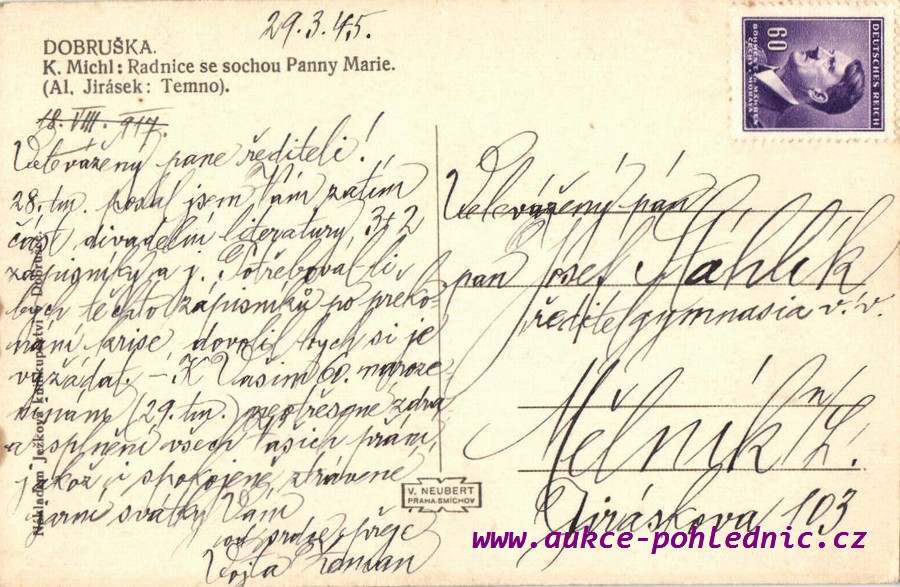 29.3.45.
DOBRUŠKA.
K. Michl: Radnice se sochou Panny Marie.
(Al. Jirásek: Temno).
18. VIII. 917.
Velevážený pane řediteli!
28. tm. poslal jsem Vám zatím
část divadelní literatury, 3+2
zápisníky a j. Potřeboval-li
bych těchto zápisníků po překo-
nání krise, dovolil bych si je
vyžádat. – K Vašim 60. naroze-
ninám (29. tm.) neotřesné zdraví
a splnění všech Vašich přání,
jakož i spokojeně strávené
jarní svátky Vám
od srdce přeje
Vojta
Velevážený pán
pan Josef Štáhlík
ředitel gymnasia v. v.
Mělník n/L.
Jiráskova 103
DEUTSCHES REICH
BÖHMEN U. MÄHREN
ČECHY A MORAVA
60
Nákladem Ježkova knihkupectví v Dobrušce.
V. NEUBERT
PRAHA-SMÍCHOV
www.aukce-pohlednic.cz